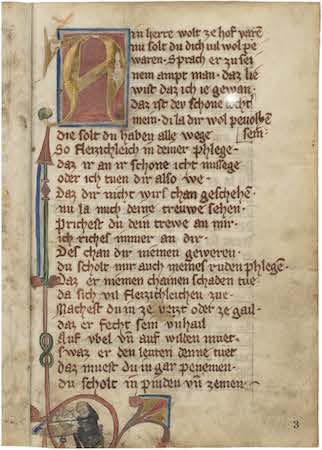 Ain herre wolt ze hof varē
nu solt du dich vil wol pe
waren · sprach er zu sei
nem ampt man · daz lie
wist daz ich ie gewan
daz ist der schone
mein · di la dir wol pevolhē
sein ·
die solt du haben alle wege
So fleizichleich in deiner phlege ·
daz ir an ir schone icht missege
oder ich tuen dir also we ·
Daz dir nicht wirs chan geschehē
nu la mich deine treuwe sehen ·
Prichest du dein trewe an mir
ich riches immer an dir ·
Des chan dir niemen geweren ·
du scholt mir auch meines ruden phlegē
Daz er niemen chainen schaden tue
da sich vil fleizichleichen zue
Machest du in ze veizt oder ze gail ·
daz er fecht sein vnhail
Auf vbel vn̄ auf wilden muet ·
Swaz er den leuten denne tuet
daz muest du in gar penemen ·
du scholt in pinden vn̄ zemen ·
3